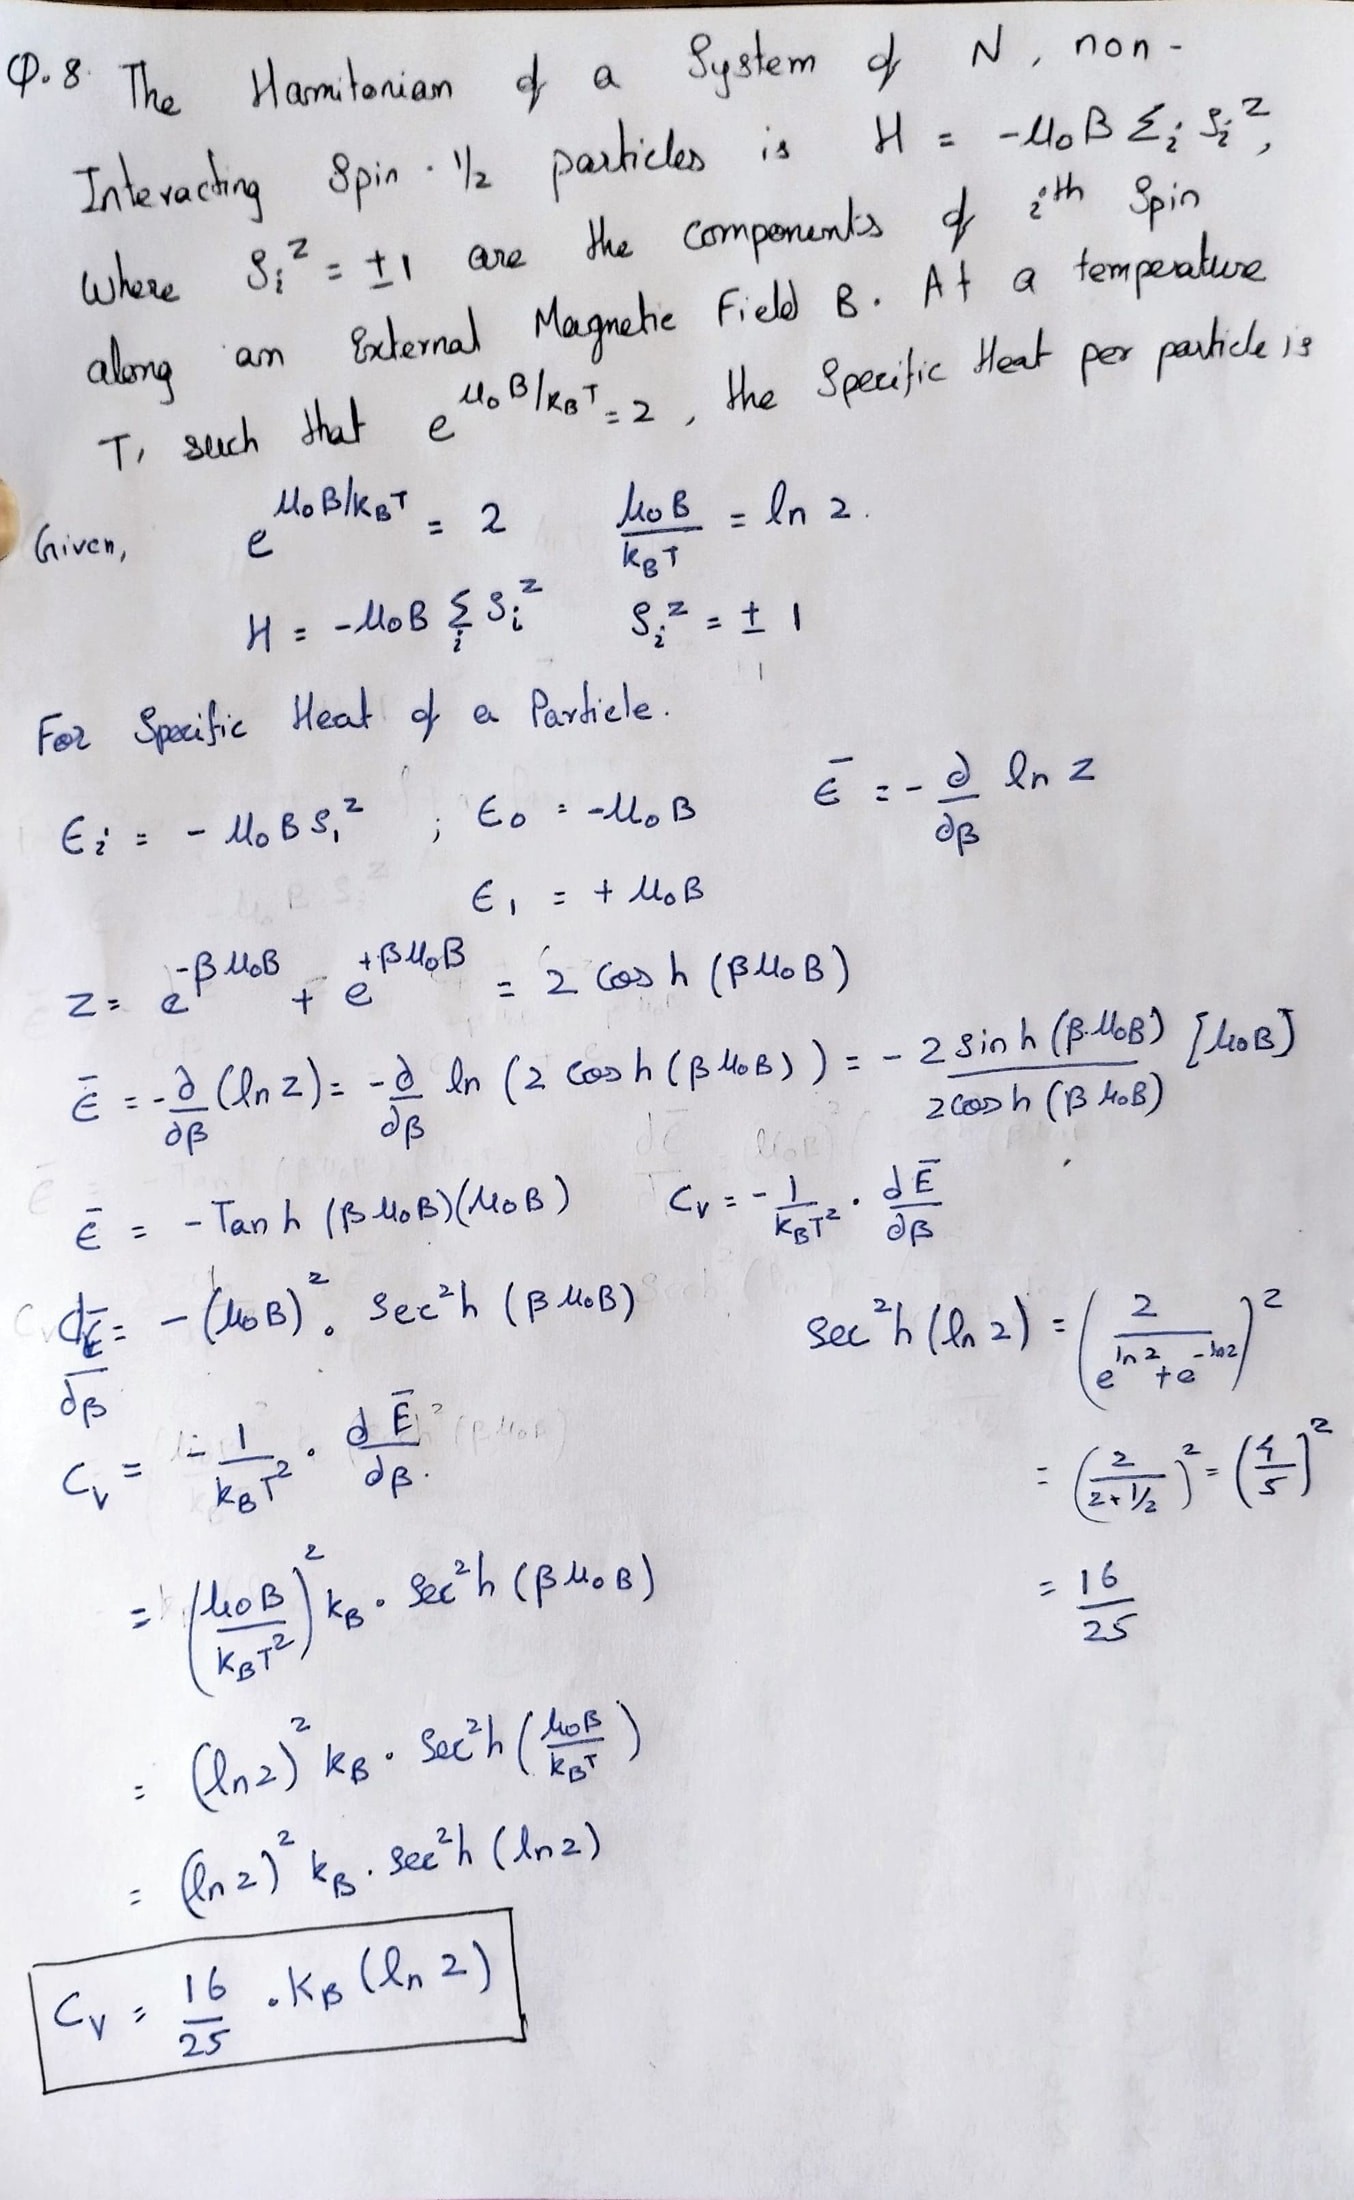 Q.8. The Hamitonian of a System of N, non-
Interacting Spin - 1/2 particles is H = -μ₀B Σᵢ Sᵢᶻ,
Where Sᵢᶻ = ±1 are the components of iᵗʰ Spin
along an External Magnetic Field B. At a temperature
T, such that e^(μ₀B/k_BT) = 2, the Specific Heat per particle is
Given, e^(μ₀B/k_BT) = 2 μ₀B/k_BT = ln 2.
H = -μ₀B Σᵢ Sᵢᶻ Sᵢᶻ = ± 1
For Specific Heat of a Particle.
ϵᵢ = - μ₀B S₁ᶻ ; ϵ₀ = -μ₀B ϵ̄ = - ∂/∂β ln z
ϵ₁ = + μ₀B
z = e^(-βμ₀B) + e^(+βμ₀B) = 2 cosh (βμ₀B)
ϵ̄ = -∂/∂β (ln z) = -∂/∂β ln (2 cosh (βμ₀B)) = - 2 sinh (β.μ₀B)/2cosh (βμ₀B) [μ₀B]
ϵ̄ = - Tanh (βμ₀B)(μ₀B) C_v = - 1/k_BT² . dĒ/∂β
dϵ̄/∂β = - (μ₀B)² . Sec²h (βμ₀B) sec²h (ln 2) = (2/(e^(ln 2) + e^(-ln2)))²
C_v = - 1/k_BT² . dĒ/dβ. = (2/(2+1/2))² = (4/5)²
= (μ₀B/k_BT²)² k_B . Sec²h (βμ₀B) = 16/25
= (ln2)² k_B . Sec²h (μ₀B/k_BT)
= (ln2)² k_B . sec²h (ln2)
C_v = 16/25 . K_B (ln 2)